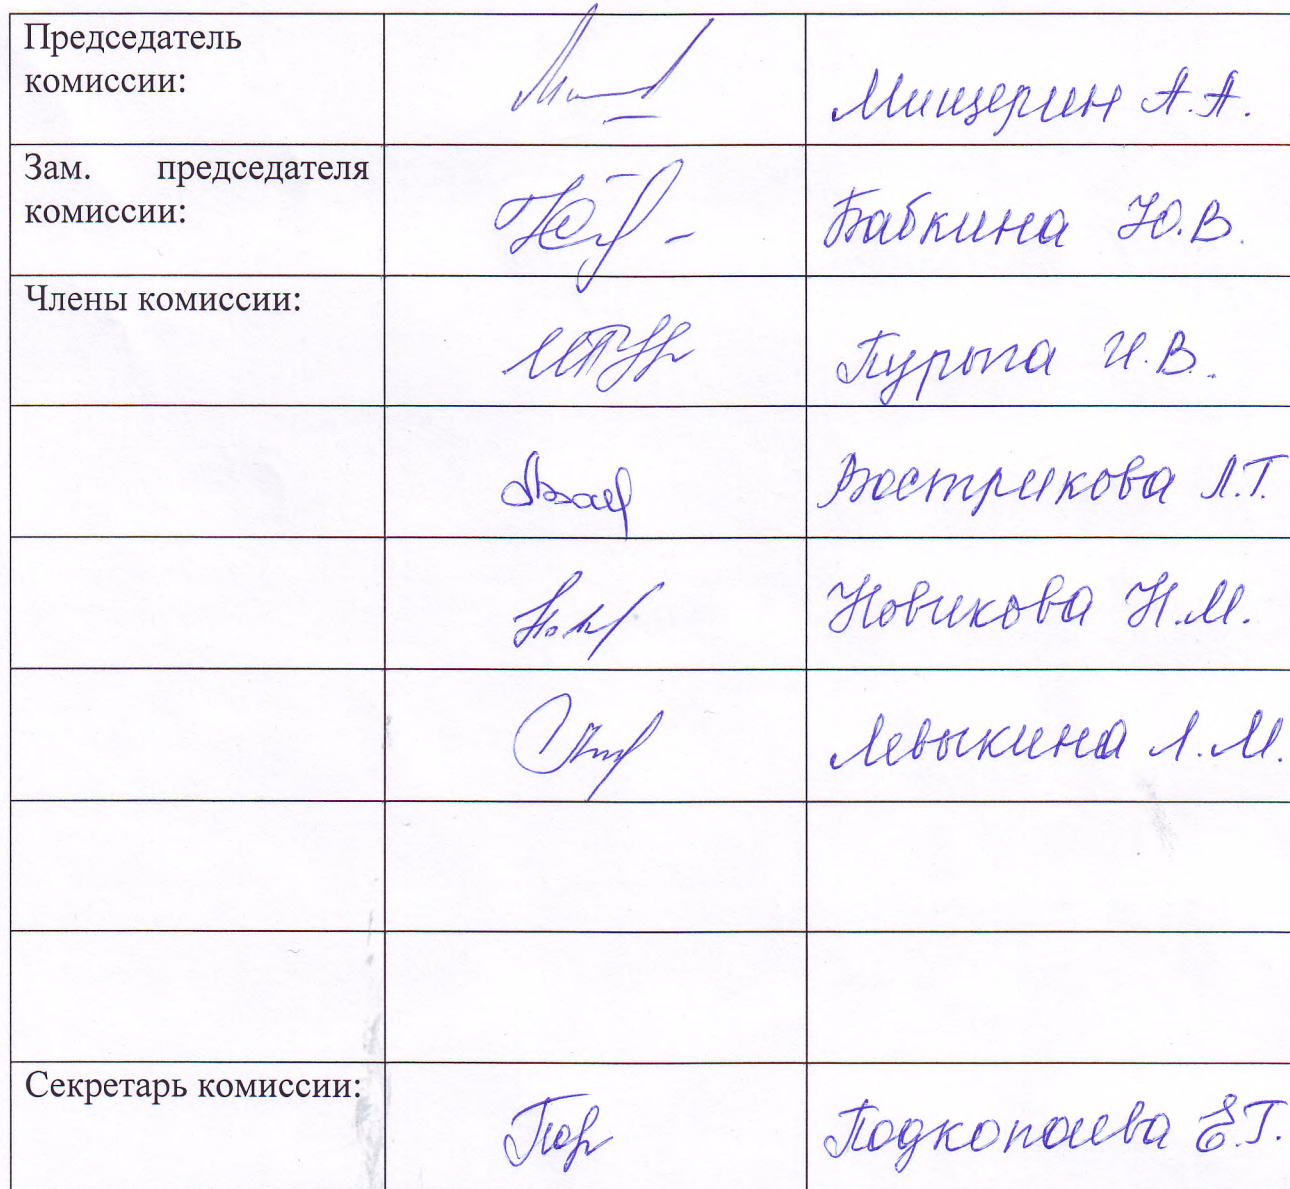 Председатель
комиссии:
Мищерин А.А.
Зам. председателя
комиссии:
Бабкина Ю.В.
Члены комиссии:
Пурыга И.В.
Вострикова Л.Т.
Новикова Н.М.
Левыкина Л.М.
Секретарь комиссии:
Подкопаева Е.Г.